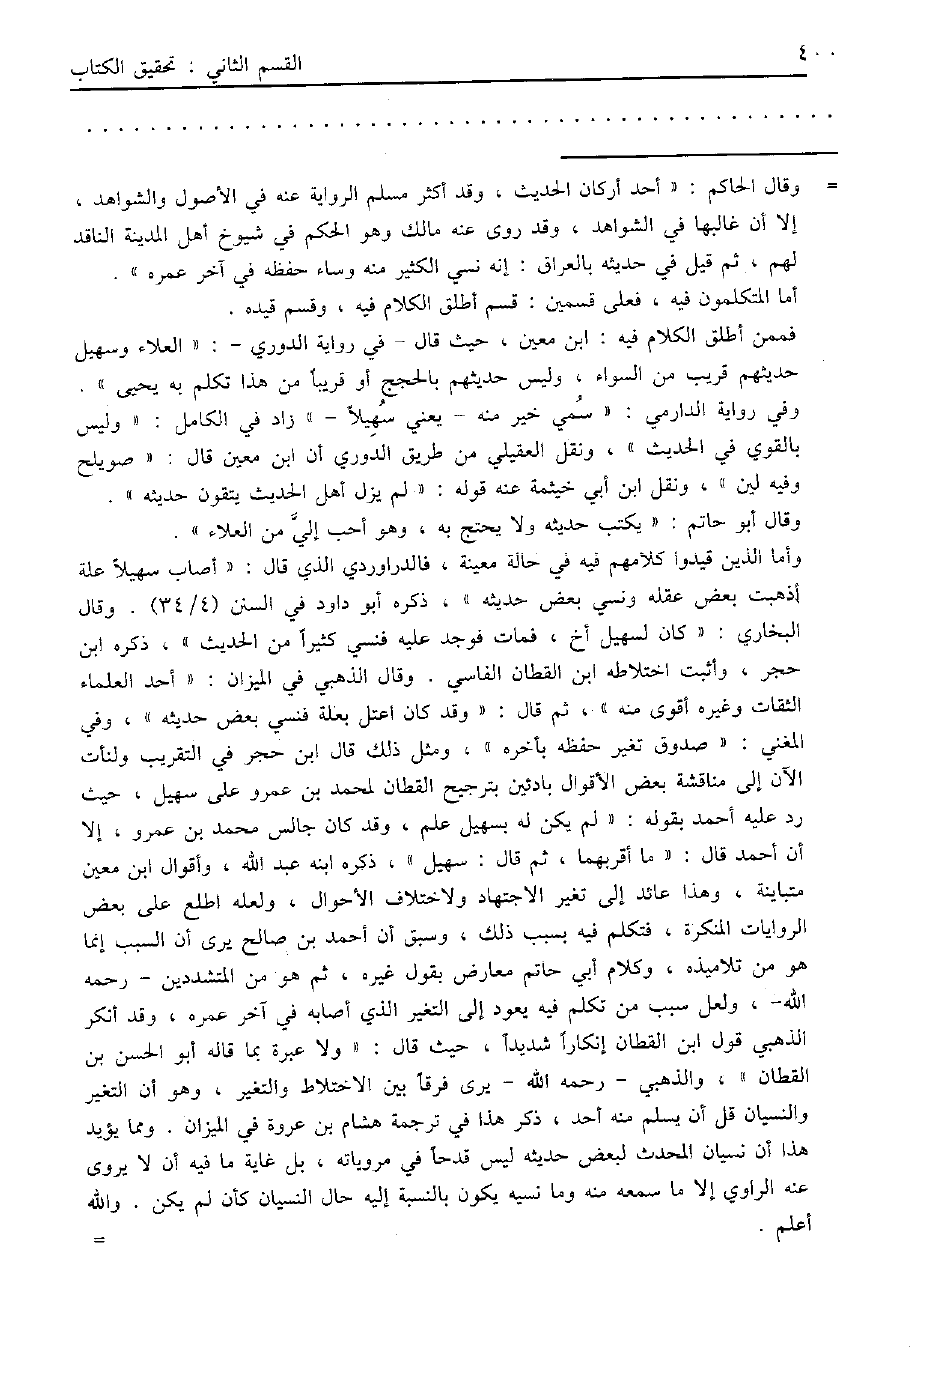 ٤٠٠
القسم الثاني : تحقيق الكتاب
. . . . . . . . . . . . . . . . . . . . . . . . . . . . . . . . . . . . . . .
= وقال الحاكم : « أحد أركان الحديث ، وقد أكثر مسلم الرواية عنه في الأصول والشواهد ،
إلا أن غالبها في الشواهد ، وقد روى عنه مالك وهو الحكم في شيوخ أهل المدينة الناقد
لهم ، ثم قيل في حديثه بالعراق : إنه نسي الكثير منه وساء حفظه في آخر عمره » .
أما المتكلمون فيه ، فعلى قسمين : قسم أطلق الكلام فيه ، وقسم قيده .
فممن أطلق الكلام فيه : ابن معين ، حيث قال – في رواية الدوري – : « العلاء وسهيل
حديثهم قريب من السواء ، وليس حديثهم بالحجج أو قريباً من هذا تكلم به يحيى » .
وفي رواية الدارمي : « سُمي خير منه – يعني سُهيلاً – » زاد في الكامل : « وليس
بالقوي في الحديث » ، ونقل العقيلي من طريق الدوري أن ابن معين قال : « صويلح
وفيه لين » ، ونقل ابن أبي خيثمة عنه قوله : « لم يزل أهل الحديث يتقون حديثه » .
وقال أبو حاتم : « يكتب حديثه ولا يحتج به ، وهو أحب إليَّ من العلاء » .
وأما الذين قيدوا كلامهم فيه في حالة معينة ، فالدراوردي الذي قال : « أصاب سهيلاً علة
أذهبت بعض عقله ونسي بعض حديثه » ، ذكره أبو داود في السنن (٣٤/٤) . وقال
البخاري : « كان لسهيل أخ ، فمات فوجد عليه فنسي كثيراً من الحديث » ، ذكره ابن
حجر ، وأثبت اختلاطه ابن القطان الفاسي . وقال الذهبي في الميزان : « أحد العلماء
الثقات وغيره أقوى منه » ، ثم قال : « وقد كان اعتل بعلة فنسي بعض حديثه » ، وفي
المغني : « صدوق تغير حفظه بأخره » ، ومثل ذلك قال ابن حجر في التقريب ولنأت
الآن إلى مناقشة بعض الأقوال بادئين بترجيح القطان لمحمد بن عمرو على سهيل ، حيث
رد عليه أحمد بقوله : « لم يكن له بسهيل علم ، وقد كان جالس محمد بن عمرو ، إلا
أن أحمد قال : « ما أقربهما ، ثم قال : سهيل » ، ذكره ابنه عبد الله ، وأقوال ابن معين
متباينة ، وهذا عائد إلى تغير الاجتهاد ولاختلاف الأحوال ، ولعله اطلع على بعض
الروايات المنكرة ، فتكلم فيه بسبب ذلك ، وسبق أن أحمد بن صالح يرى أن السبب إنما
هو من تلاميذه ، وكلام أبي حاتم معارض بقول غيره ، ثم هو من المتشددين – رحمه
الله– ، ولعل سبب من تكلم فيه يعود إلى التغير الذي أصابه في آخر عمره ، وقد أنكر
الذهبي قول ابن القطان إنكاراً شديداً ، حيث قال : « ولا عبرة بما قاله أبو الحسن بن
القطان » ، والذهبي – رحمه الله – يرى فرقاً بين الاختلاط والتغير ، وهو أن التغير
والنسيان قل أن يسلم منه أحد ، ذكر هذا في ترجمة هشام بن عروة في الميزان . ومما يؤيد
هذا أن نسيان المحدث لبعض حديثه ليس قدحاً في مروياته ، بل غاية ما فيه أن لا يروى
عنه الراوي إلا ما سمعه منه وما نسيه يكون بالنسبة إليه حال النسيان كأن لم يكن . والله
أعلم .
=